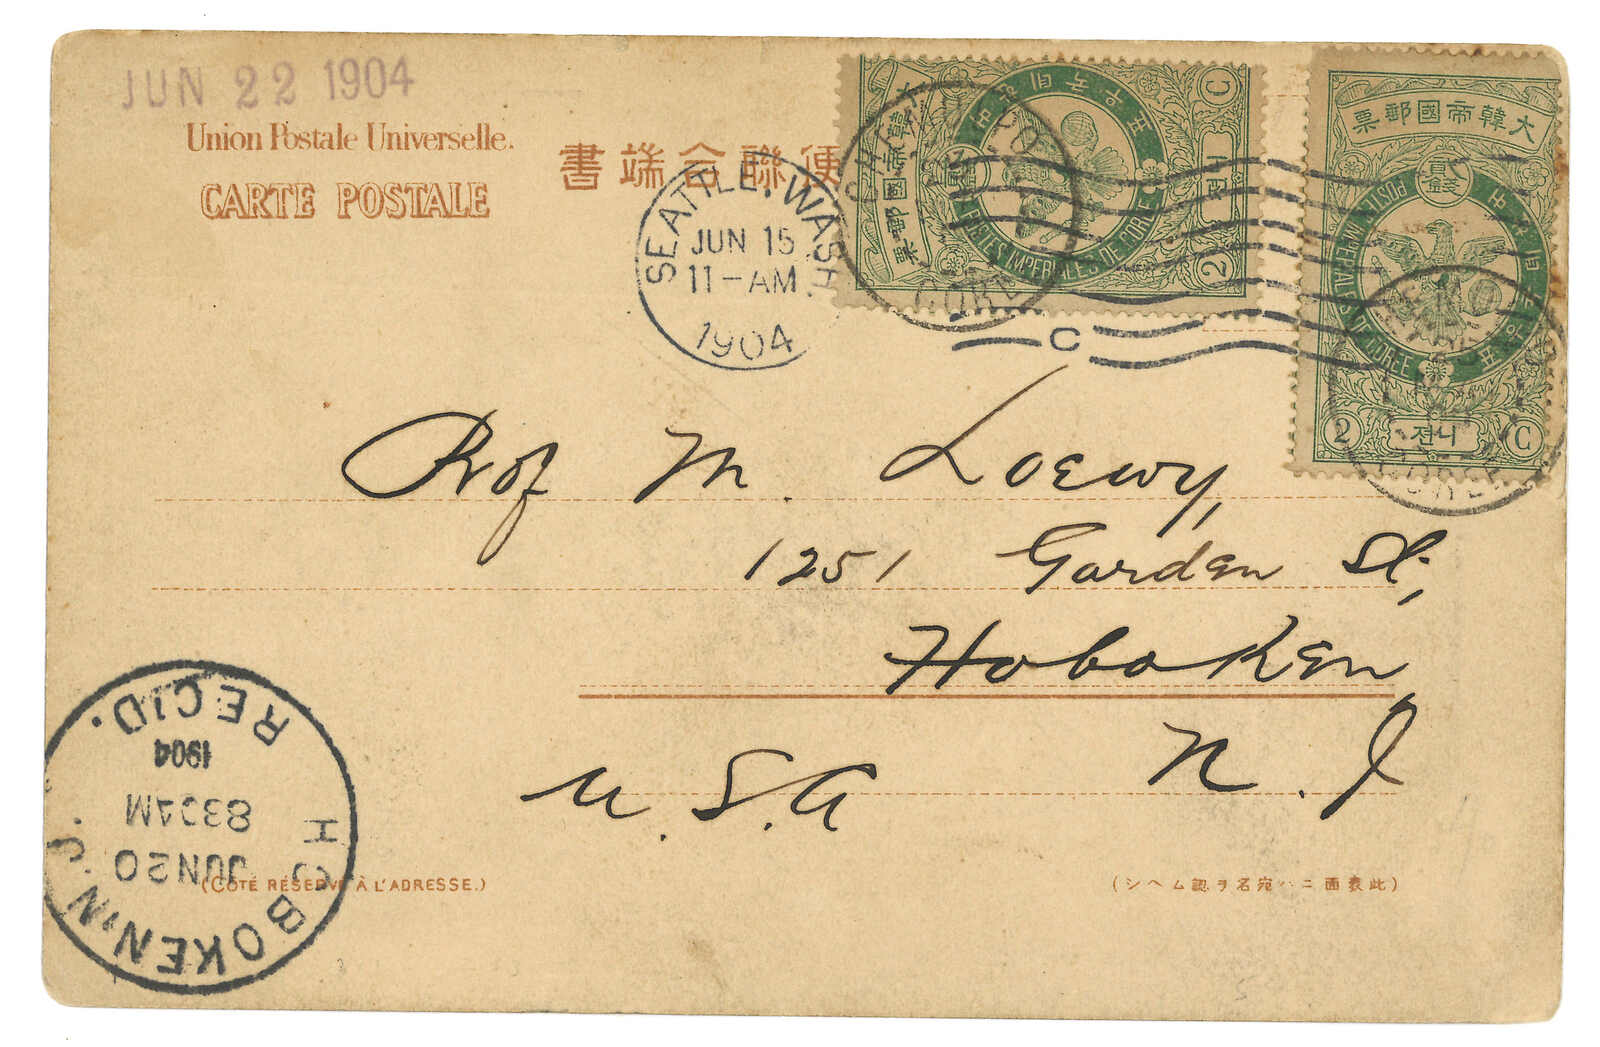 JUN 22 1904
Union Postale Universelle.
CARTE POSTALE
書端合聯便
SEATTLE, WASH.
JUN 15
11-AM
1904
C
CHEMULPO
COREE
大韓帝國郵票
POSTES IMPERIALES DE COREE
2 C
大韓帝國郵票
POSTES IMPERIALES DE COREE
2 젼니 C
COREE
Prof M. Loewy,
1251 Garden St.,
Hoboken,
N. J.
U. S. A
HOBOKEN, N.J.
JUN 20
830AM
1904
REC'D.
(CÔTÉ RÉSERVÉ À L'ADRESSE.)
(シヘム認ヲ名宛ハニ面表此)